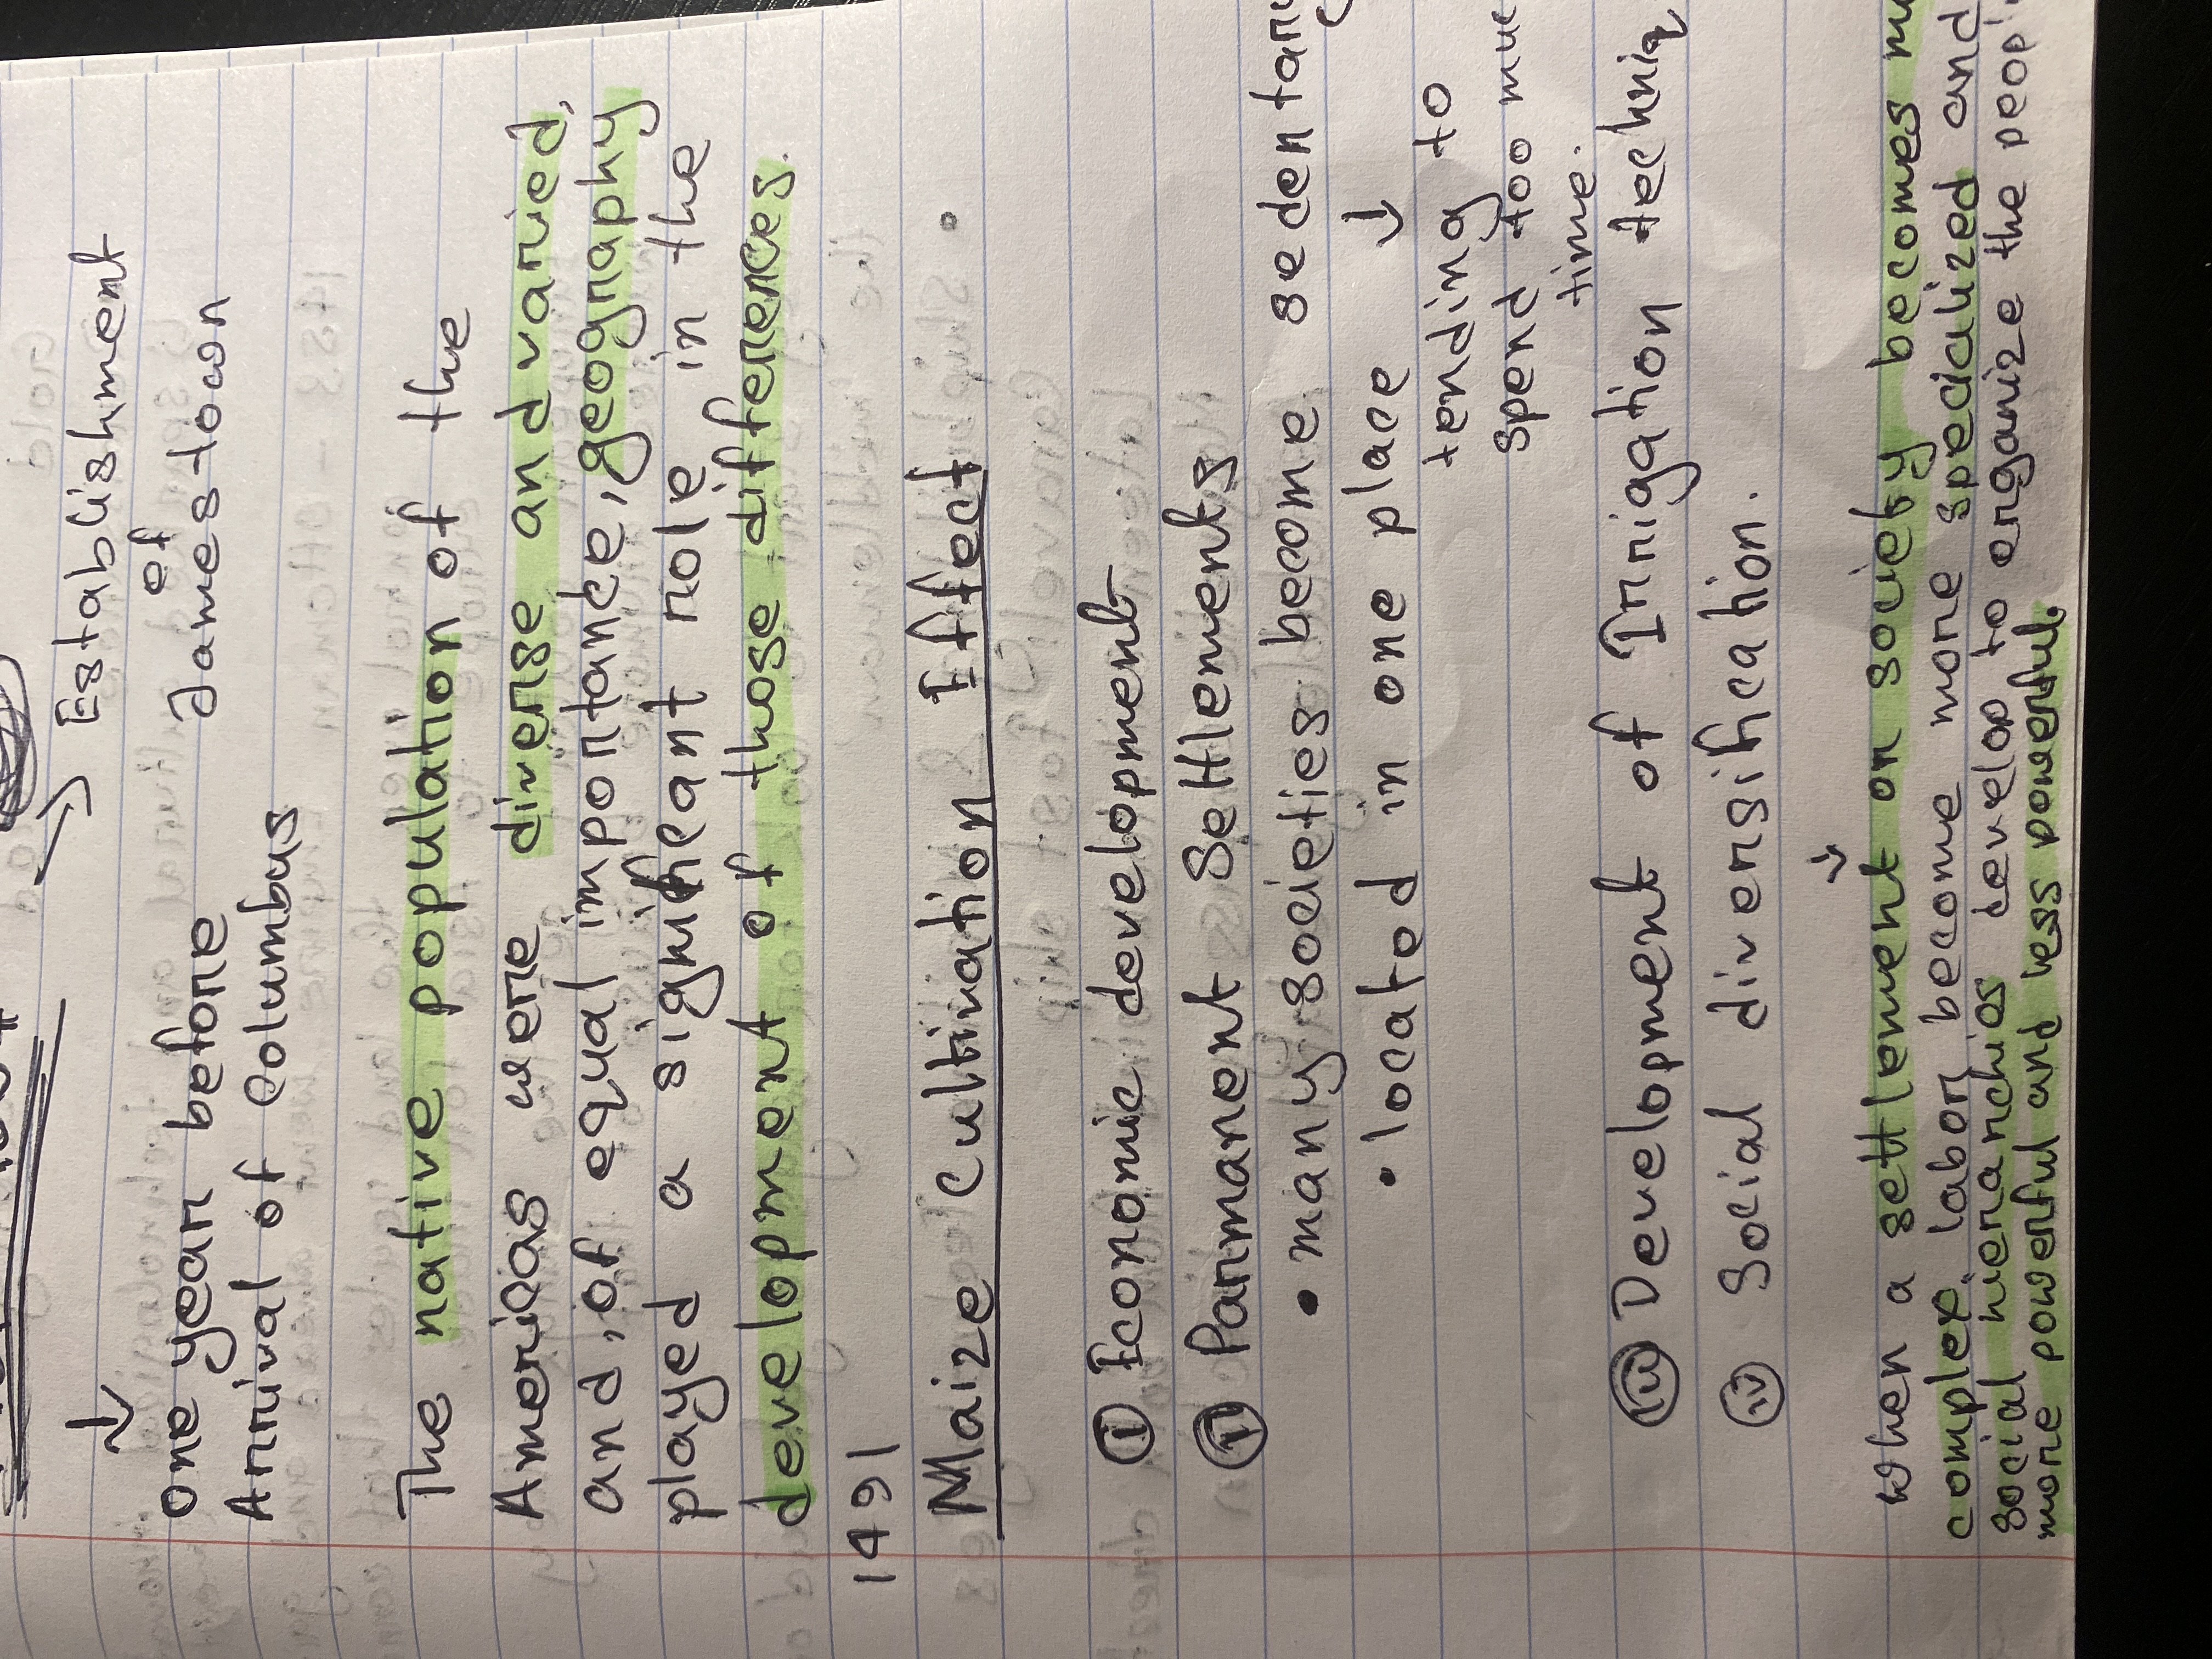 → Establishment
of
Jamestown
↓
one year before
Arrival of columbus
The native population of the
Americas were diverse and varied,
and, of equal importance, geography
played a significant role in the
development of those differences.
1491
Maize cultivation Effect
① Economic development
② Parmanent Settlements
• many societies become sedentary
• located in one place ↓
tending to
spend too muc
time.
Development of Irrigation techniq
Social diversification.
↓
when a settlement or society becomes m
complex, labor become more specialized and
social hierarchios develop to organize the peopl
more powerful and less powerful.